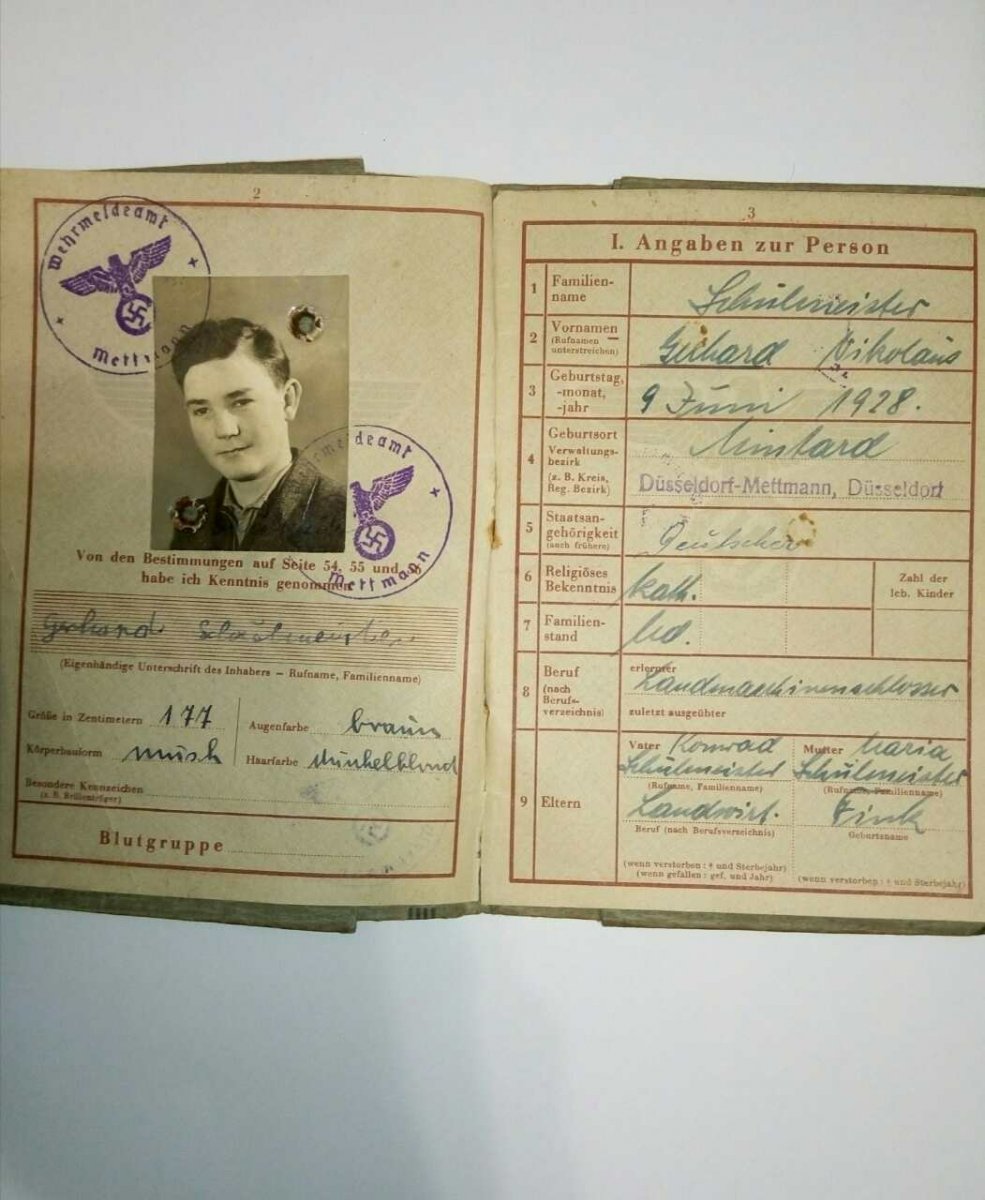 2
Wehrmeldeamt
Mettmann
Wehrmeldeamt
Mettmann
Von den Bestimmungen auf Seite 54, 55 und
habe ich Kenntnis genommen
Gerhard Schulmeister
(Eigenhändige Unterschrift des Inhabers – Rufname, Familienname)
Größe in Zentimetern 177
Augenfarbe braun
Körperbauform musk
Haarfarbe dunkelblond
Besondere Kennzeichen
(z. B. Brillenträger)
Blutgruppe
3
I. Angaben zur Person
1 Familien-
name
Schulmeister
2 Vornamen
(Rufnamen
unterstreichen)
Gerhard Nikolaus
3 Geburtstag,
-monat,
-jahr
9 Juni 1928.
4 Geburtsort
Verwaltungs-
bezirk
(z. B. Kreis,
Reg. Bezirk)
Mintard
Düsseldorf-Mettmann, Düsseldorf
5 Staatsan-
gehörigkeit
(auch frühere)
Deutscher
6 Religiöses
Bekenntnis
kath.
Zahl der
leb. Kinder
7 Familien-
stand
led.
8 Beruf
(nach
Berufs-
verzeichnis)
erlernter
Landmaschinenschlosser
zuletzt ausgeübter
9 Eltern
Vater Konrad
Schulmeister
(Rufname, Familienname)
Landwirt.
Beruf (nach Berufsverzeichnis)
(wenn verstorben: † und Sterbejahr)
(wenn gefallen: gef. und Jahr)
Mutter Maria
Schulmeister
(Rufname, Familienname)
Fink
Geburtsname
(wenn verstorben: † und Sterbejahr)